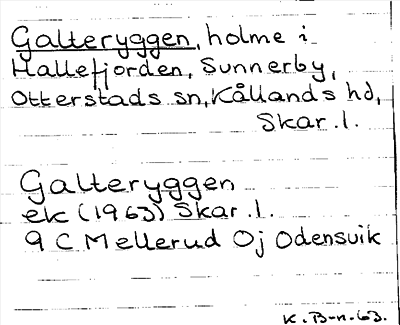 Galteryggen, holme i
Hallefjorden, Sunnerby,
Otterstads sn, Kållands hd,
Skar. l.
Galteryggen
ek (1963) Skar. l.
9 C Mellerud Oj Odensvik
K. B-n. 63.